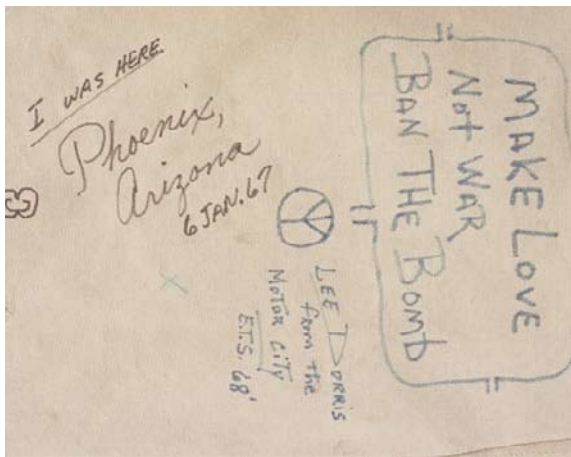 I WAS HERE
Phoenix,
Arizona
6 JAN. 67
MAKE LOVE
NOT WAR
BAN THE BOMB
LEE DORRIS
from the
MOTOR CITY
E.T.S. 68'